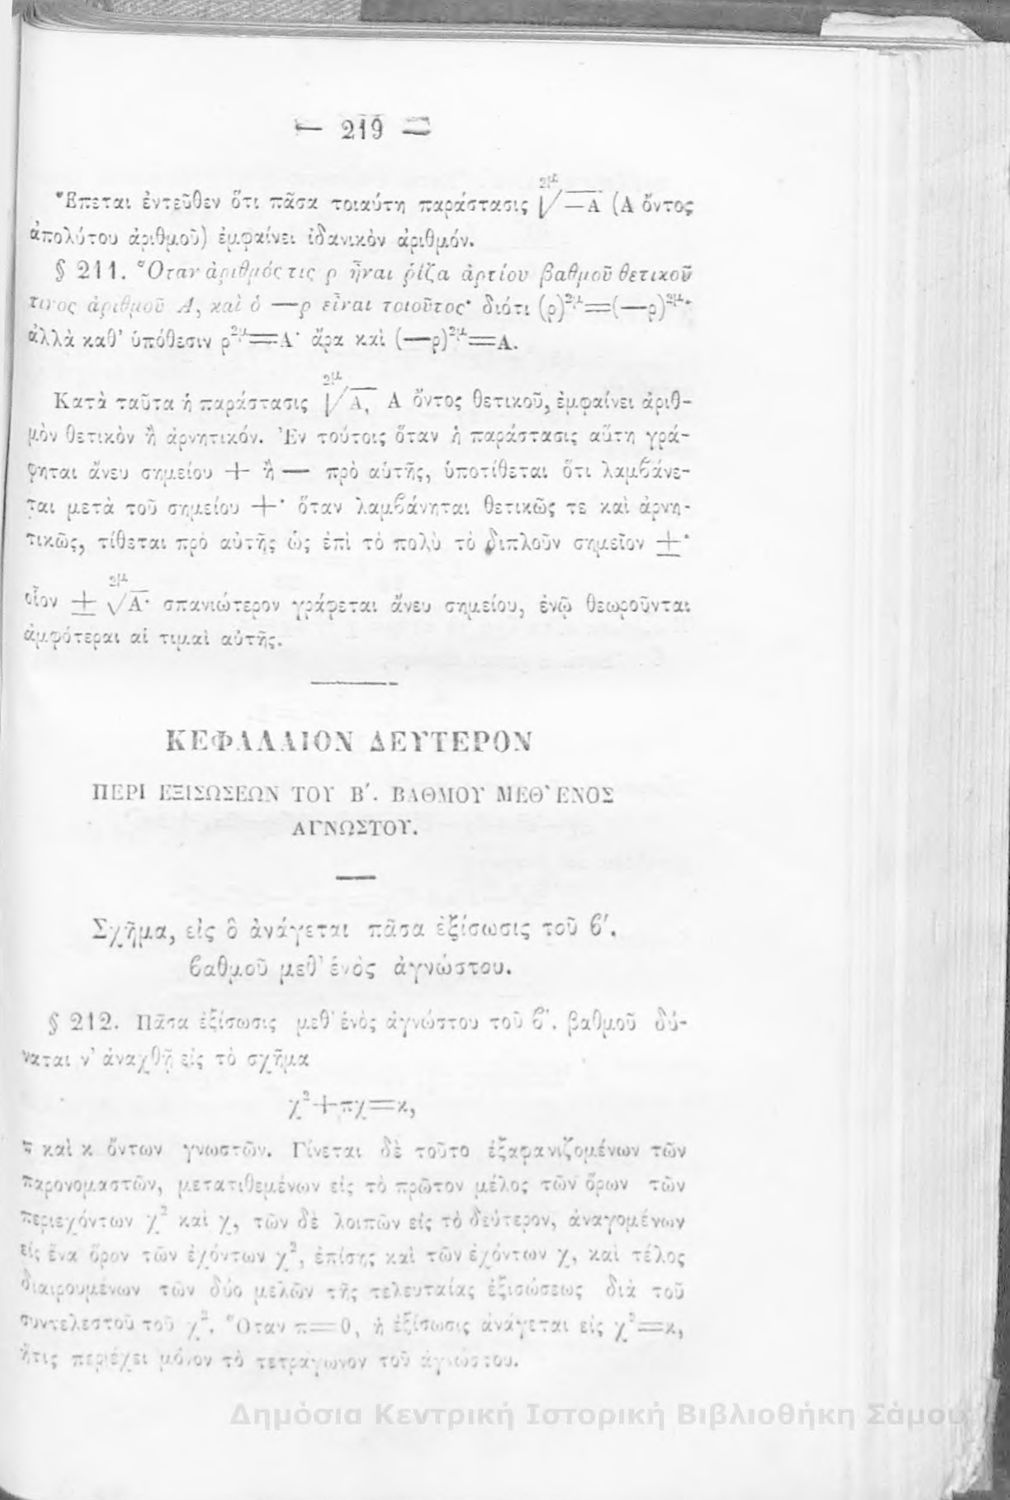 — 219 —
Ἕπεται ἐντεῦθεν ὅτι πᾶσα τοιαύτη παράστασις \sqrt[2μ]{—Α} (Α ὄντος
ἀπολύτου ἀριθμοῦ) ἐμφαίνει ἰδανικὸν ἀριθμόν.
§ 211. Ὅταν ἀριθμός τις ρ ἦναι ῥίζα ἀρτίου βαθμοῦ θετικοῦ
τινος ἀριθμοῦ Α, καὶ ὁ —ρ εἶναι τοιοῦτος· διότι (ρ)²ᵘ=(—ρ)²ᵘ·
ἀλλὰ καθ’ ὑπόθεσιν ρ²ᵘ=Α· ἄρα καὶ (—ρ)²ᵘ=Α.
Κατὰ ταῦτα ἡ παράστασις \sqrt[2μ]{Α}, Α ὄντος θετικοῦ, ἐμφαίνει ἀριθ-
μὸν θετικὸν ἢ ἀρνητικόν. Ἐν τούτοις ὅταν ἡ παράστασις αὕτη γρά-
φηται ἄνευ σημείου + ἢ — πρὸ αὐτῆς, ὑποτίθεται ὅτι λαμϐάνε-
ται μετὰ τοῦ σημείου +· ὅταν λαμϐάνηται θετικῶς τε καὶ ἀρνη-
τικῶς, τίθεται πρὸ αὐτῆς ὡς ἐπὶ τὸ πολὺ τὸ διπλοῦν σημεῖον ±·
οἷον ± \sqrt[2μ]{Α}· σπανιώτερον γράφεται ἄνευ σημείου, ἐνῷ θεωροῦνται
ἀμφότεραι αἱ τιμαὶ αὐτῆς.
ΚΕΦΑΛΑΙΟΝ ΔΕΥΤΕΡΟΝ
ΠΕΡΙ ΕΞΙΣΩΣΕΩΝ ΤΟΥ Β΄. ΒΑΘΜΟΥ ΜΕΘ’ ΕΝΟΣ
ΑΓΝΩΣΤΟΥ.
Σχῆμα, εἰς ὃ ἀνάγεται πᾶσα ἐξίσωσις τοῦ ϐ΄.
ϐαθμοῦ μεθ’ ἑνὸς ἀγνώστου.
§ 212. Πᾶσα ἐξίσωσις μεθ’ ἑνὸς ἀγνώστου τοῦ ϐ΄. βαθμοῦ δύ-
ναται ν’ ἀναχθῇ εἰς τὸ σχῆμα
χ²+πχ=κ,
π καὶ κ ὄντων γνωστῶν. Γίνεται δὲ τοῦτο ἐξαφανιζομένων τῶν
παρονομαστῶν, μετατιθεμένων εἰς τὸ πρῶτον μέλος τῶν ὅρων τῶν
περιεχόντων χ² καὶ χ, τῶν δὲ λοιπῶν εἰς τὸ δεύτερον, ἀναγομένων
εἰς ἕνα ὅρον τῶν ἐχόντων χ², ἐπίσης καὶ τῶν ἐχόντων χ, καὶ τέλος
διαιρουμένων τῶν δύο μελῶν τῆς τελευταίας ἐξισώσεως διὰ τοῦ
συντελεστοῦ τοῦ χ². Ὅταν π=0, ἡ ἐξίσωσις ἀνάγεται εἰς χ²=κ,
ἥτις περιέχει μόνον τὸ τετράγωνον τοῦ ἀγνώστου.
Δημόσια Κεντρική Ιστορική Βιβλιοθήκη Σάμου